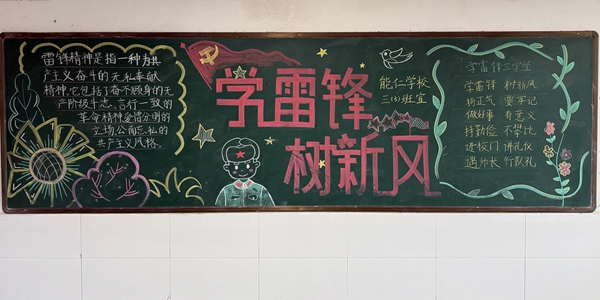 雷锋精神是指一种为共
产主义奋斗的无私奉献
精神,它包括了奋不顾身的无
产阶级斗志,言行一致的
革命精神爱憎分明的
立场,公而忘私的
共产主义风格.
学雷锋
树新风
能仁学校
三(3)班宣
学雷锋三字经
学雷锋 树新风
扬正气 要牢记
做好事 有意义
持勤俭 不攀比
进校门 讲礼仪
遇师长 行队礼